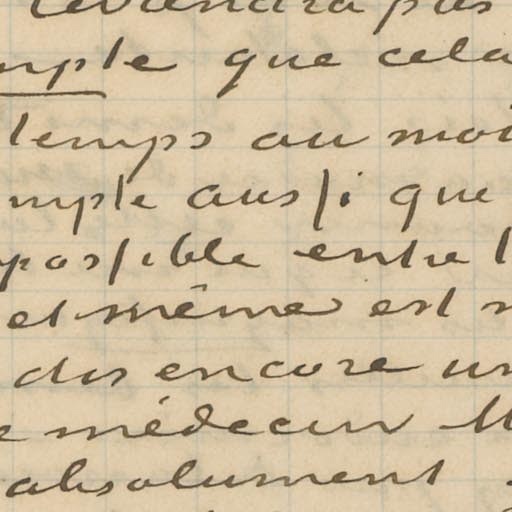 pas
mple que cela
temps au moi
mple aussi que
possible entre l
et même est
dis encore un
médecin M
absolument